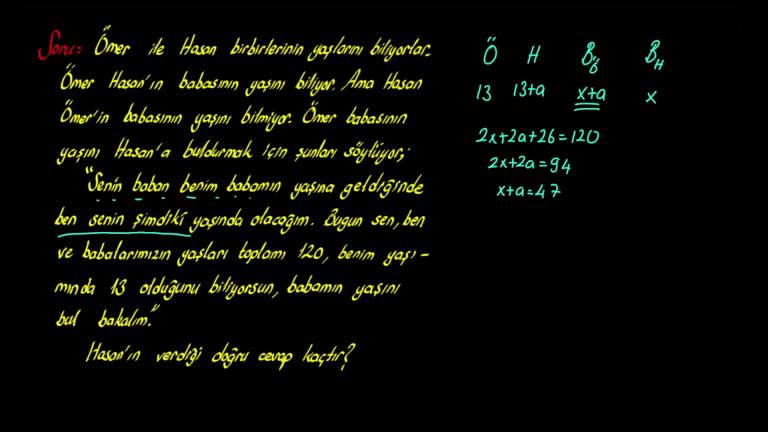 Soru: Ömer ile Hasan birbirlerinin yaşlarını biliyorlar.
Ömer Hasan'ın babasının yaşını biliyor. Ama Hasan
Ömer'in babasının yaşını bilmiyor. Ömer babasının
yaşını Hasan'a buldurmak için şunları söylüyor;
"Senin baban benim babamın yaşına geldiğinde
ben senin şimdiki yaşında olacağım. Bugun sen, ben
ve babalarımızın yaşları toplamı 120, benim yaşı-
mında 13 olduğunu biliyorsun, babamın yaşını
bul bakalım."
Hasan'ın verdiği doğru cevap kaçtır?
Ö H BÖ BH
13 13+a x+a x
2x+2a+26=120
2x+2a=94
x+a=47